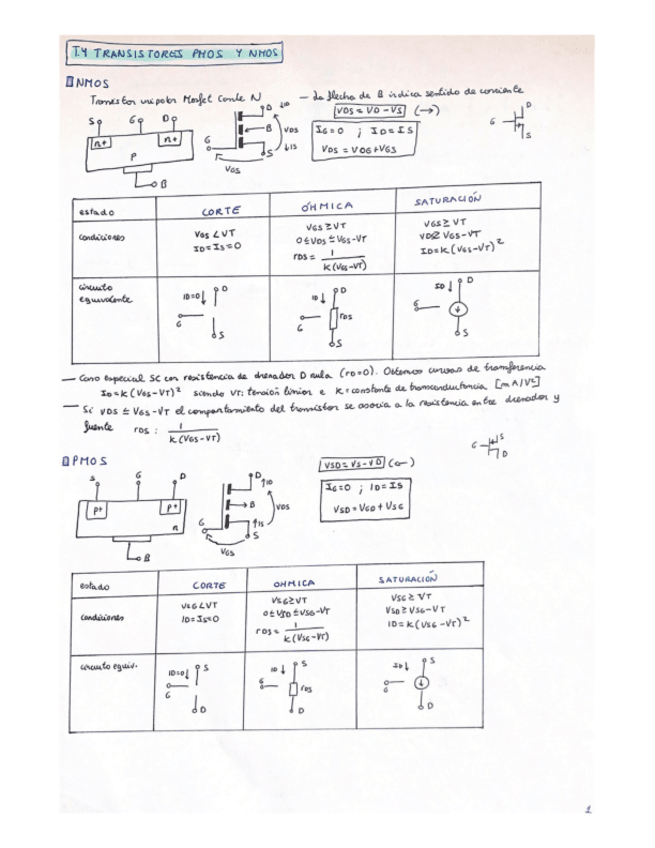 T.4 TRANSISTORES PMOS Y NMOS
NMOS
Transistor unipolar Mosfet Canle N
— La flecha de B indica sentido de corriente
VDS = VD - VS (→)
IG=0 ; ID=IS
VDS = VDG+VGS
S G D
n+ n+
P
B
G D ID B VDS IS S
VGS
G D S
estado CORTE ÓHMICA SATURACIÓN
condiciones
VGS < VT
ID=IS=0
VGS ≥ VT
0 ≤ VDS ≤ VGS-VT
rDS = 1 / K(VGS-VT)
VGS ≥ VT
VDS ≥ VGS-VT
ID=K(VGS-VT)²
circuito
equivalente
ID=0↓ D
G
S
ID↓ D
G rDS
S
ID↓ D
G
S
— Caso especial SC con resistencia de drenador D nula (rD=0). Obtenemos curvas de transferencia
ID=K(VGS-VT)² siendo VT: tensión límite e K=constante de transconductancia [mA/V²]
— Si VDS ≤ VGS-VT el comportamiento del transistor se asocia a la resistencia entre drenador y
fuente rDS : 1 / K(VGS-VT)
PMOS
VSD = VS-VD (←)
IG=0 ; ID=IS
VSD = VGD + VSG
S G D
P+ P+
n
B
G D ID B VDS IS S
VGS
G S D
estado CORTE OHMICA SATURACIÓN
condiciones
VSG<VT
ID=IS=0
VSG≥VT
0≤VSD≤VSG-VT
rDS = 1 / K(VSG-VT)
VSG ≥ VT
VSD ≥ VSG-VT
ID=K(VSG-VT)²
circuito equiv.
ID=0↓ S
G
D
ID↓ S
G rDS
D
ID↓ S
G
D
1